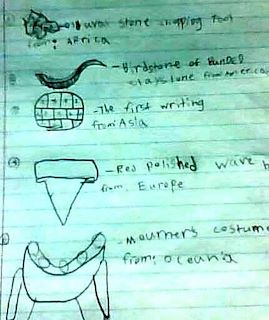 olduvai stone chopping tool
from: Africa
-Birdstone of Banded
claystone from America
-The first writing
from: Asia
-Red polished wave
from Europe
-mourners costume
from: Oceania